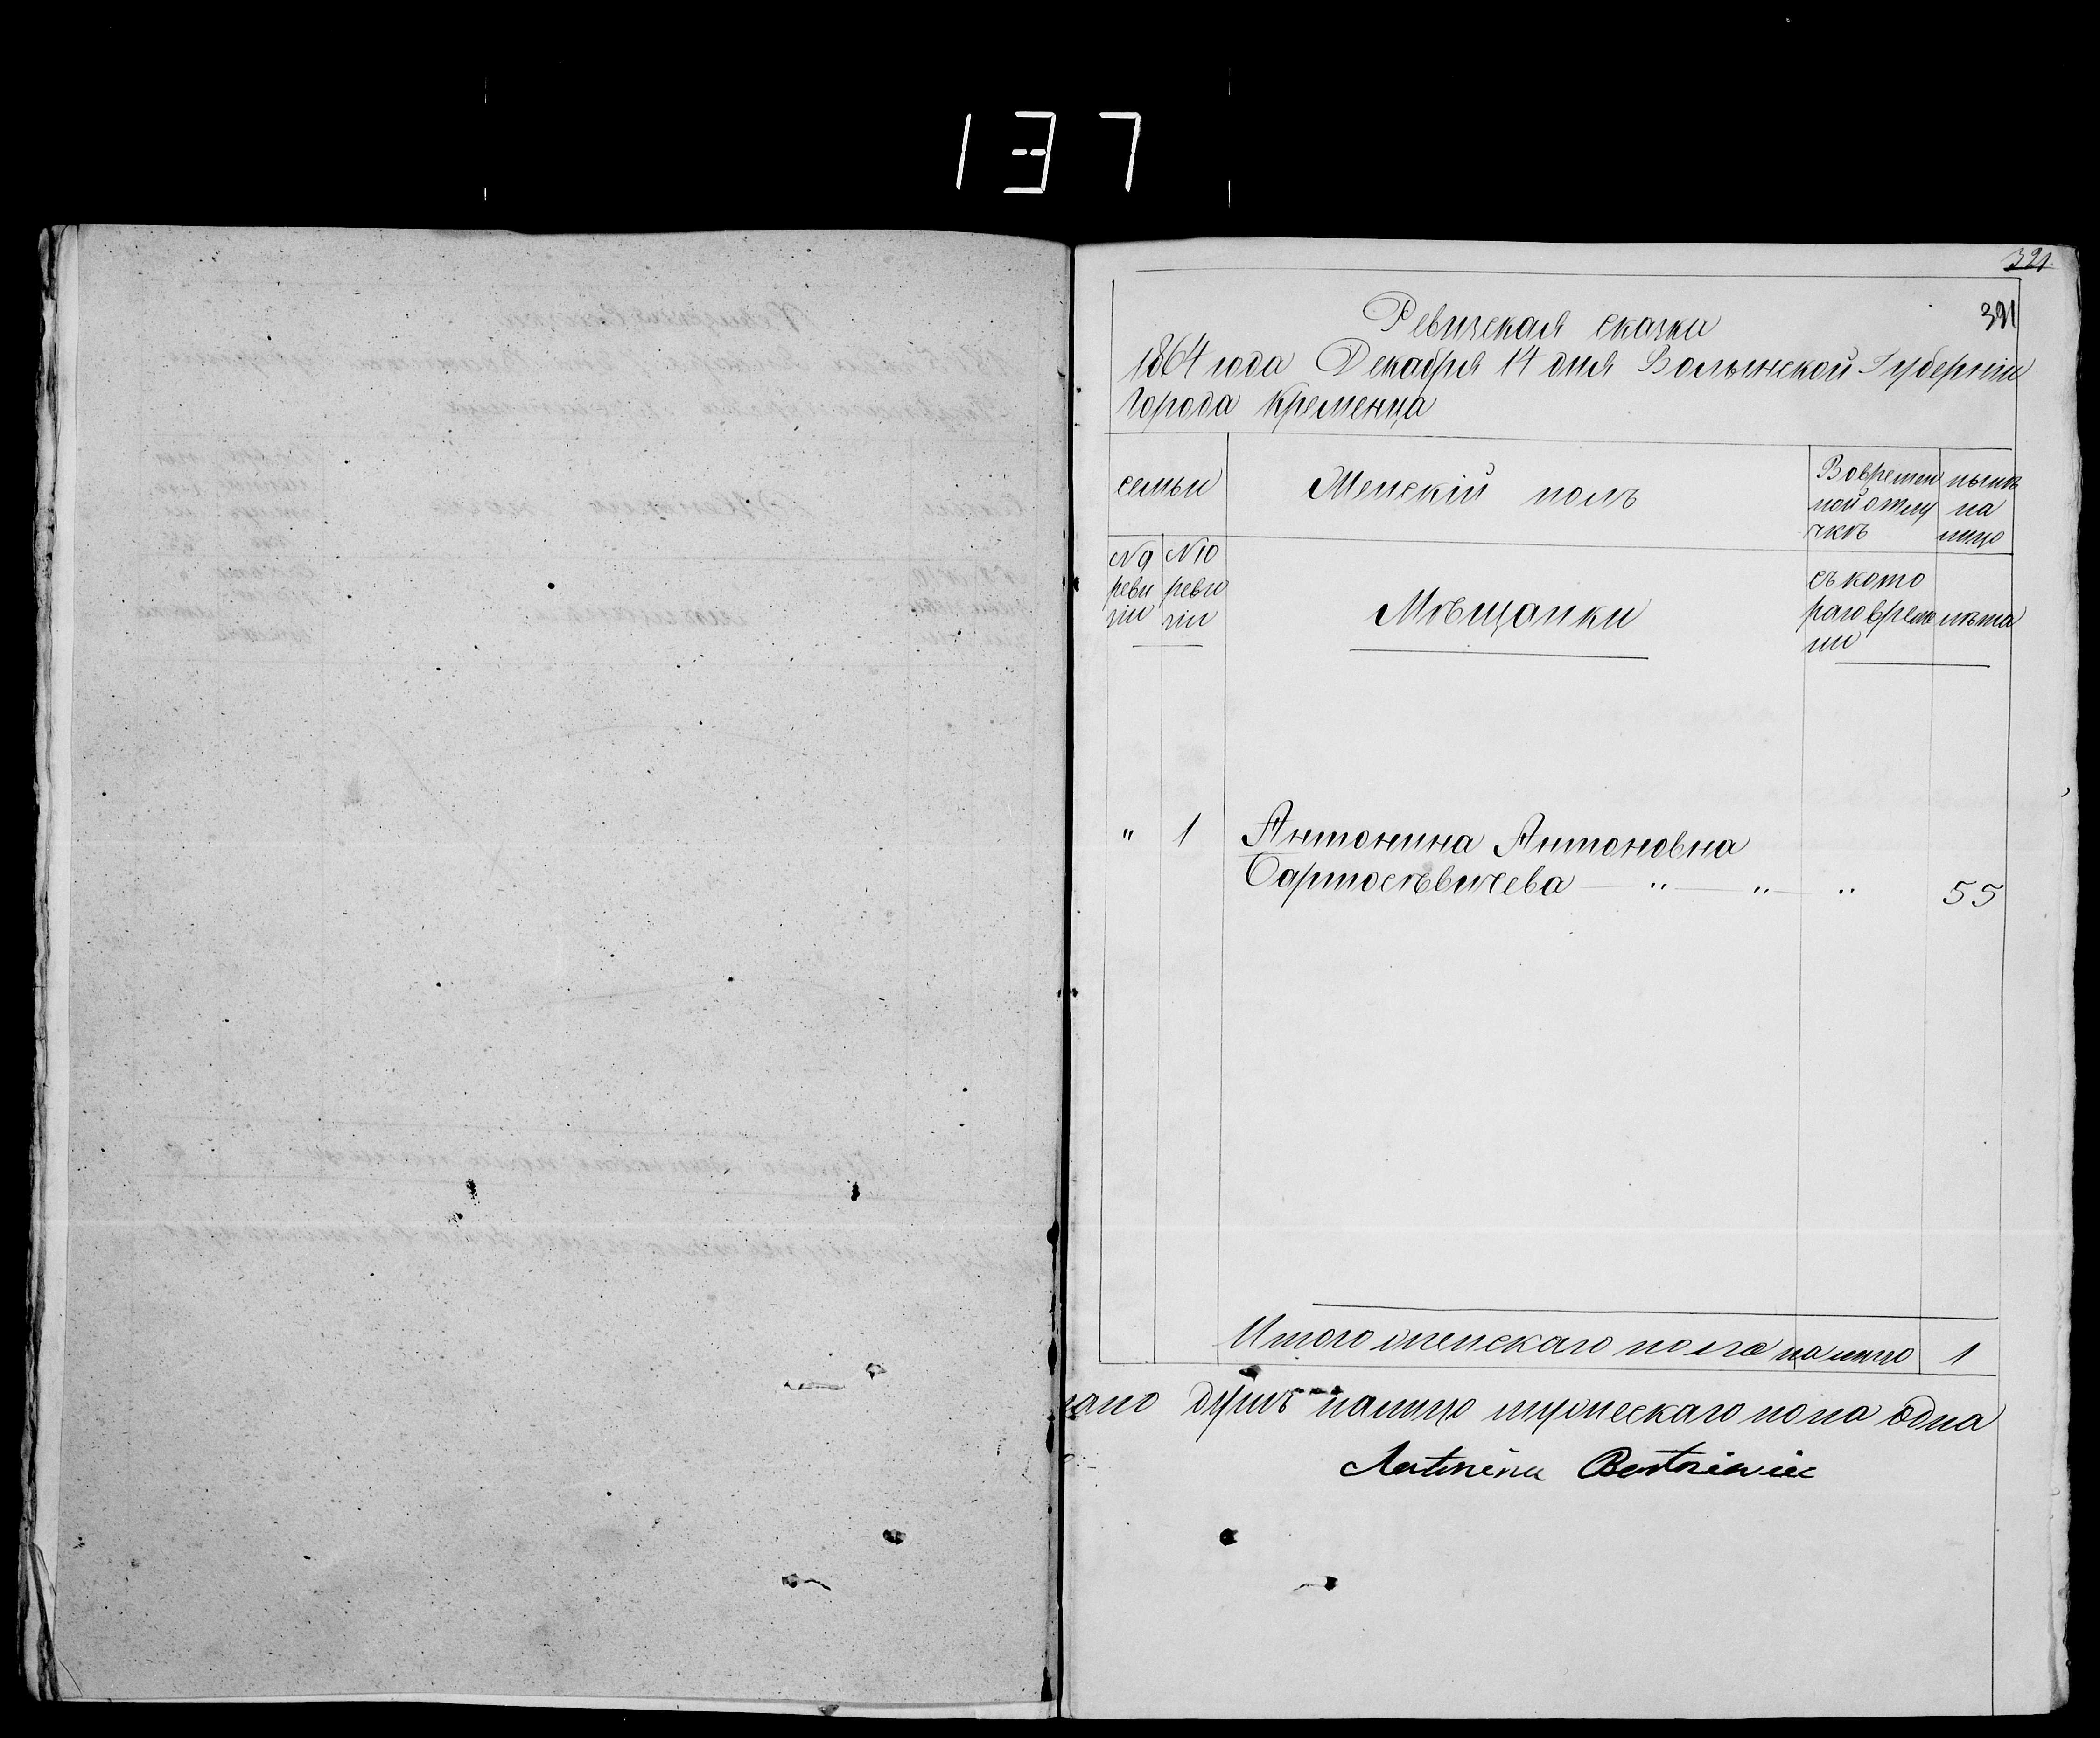 137
321
391
Ревизская сказка
1864 года Декабря 14 дня Волынской Губерніи
города Кременца
семьи
Женскій полъ
Во времен
ной отлу
чкѣ
нынѣ
на
лицо
№ 9
реви
зіи
№ 10
реви
зіи
Мѣщанки
съ кото
раго време
ни
лѣта
" 1 Антонина Антоновна
Бартосѣвичева — " — " — " 55
Итого женскаго пола на лицо 1
душъ налицо мужескаго пола одна
Antonina Bartosiewicz